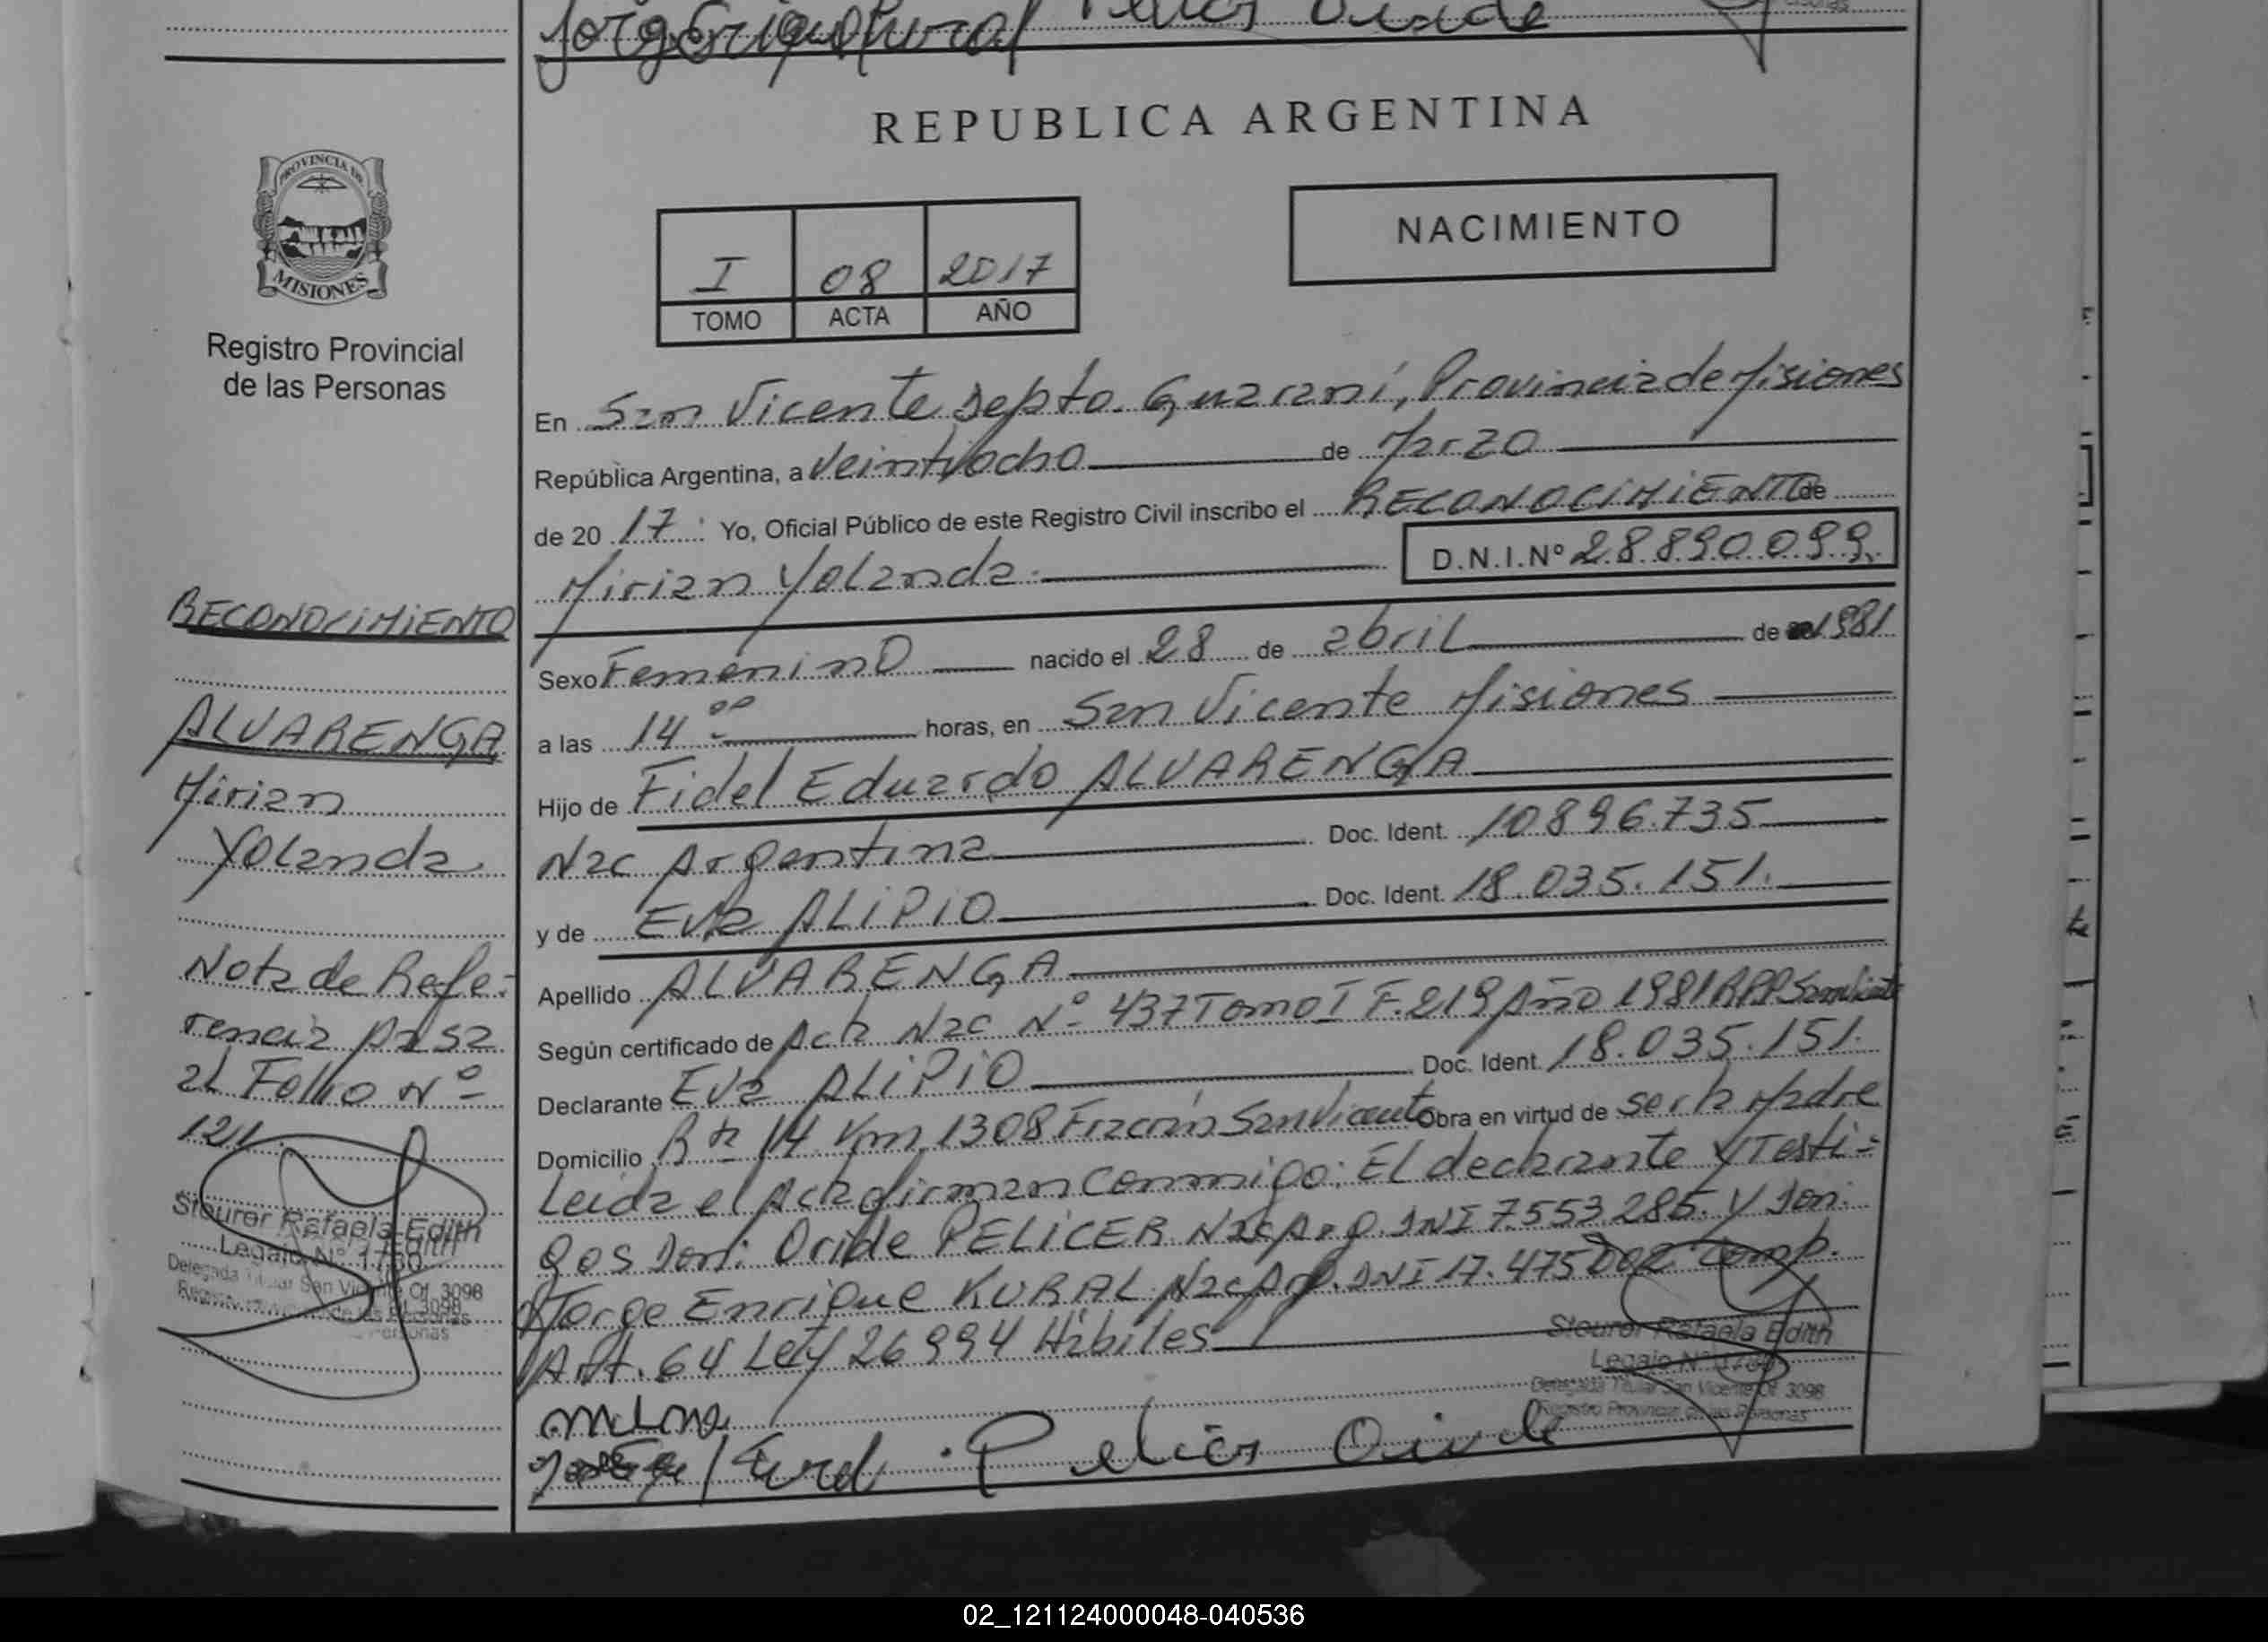 Jorge Enrique Kural Pelicer Oride
REPUBLICA ARGENTINA
PROVINCIA DE
MISIONES
Registro Provincial
de las Personas
NACIMIENTO
I 08 2017
TOMO ACTA AÑO
En San Vicente Depto. Guaraní, Provincia de Misiones
República Argentina, a Veintiocho de Marzo
de 20 17 : Yo, Oficial Público de este Registro Civil inscribo el RECONOCIMIENTO de
Mirian Yolanda. D.N.I.Nº 28890099.
Sexo Femenino nacido el 28 de abril de 1981
a las 14 00 horas, en San Vicente Misiones
Hijo de Fidel Eduardo ALVARENGA
Nac Argentina Doc. Ident. 10896.735
y de Eva ALIPIO Doc. Ident. 18.035.151.
Apellido ALVARENGA
Según certificado de Acta Nac Nº 437 Tomo I F. 219 Año 1981 RPP San Vicente
Declarante Eva ALIPIO Doc. Ident. 18.035.151.
Domicilio Rta 14 Km 1308 Fracrán San Vicente Obra en virtud de ser la Madre
Leida el Acta firman conmigo: El declarante y Testi-
gos Don: Oride PELICER Nac Arg. DNI 7553.285. Y Don:
Jorge Enrique KURAL Nac Arg. DNI 17.475 002 comp.
Art. 64 Ley 26994 Hábiles
Pelicer Oride
Steurer Rafaela Edith
Legajo Nº 1760
Delegada Titular San Vicente Of. 3098
Registro Provincial de las Personas
RECONOCIMIENTO
ALVARENGA
Mirian
Yolanda
Nota de Refe-
rencia pasa
al Folio Nº
121.
Steurer Rafaela Edith
Legajo Nº 1760
Delegada Titular San Vicente Of. 3098
02_121124000048-040536